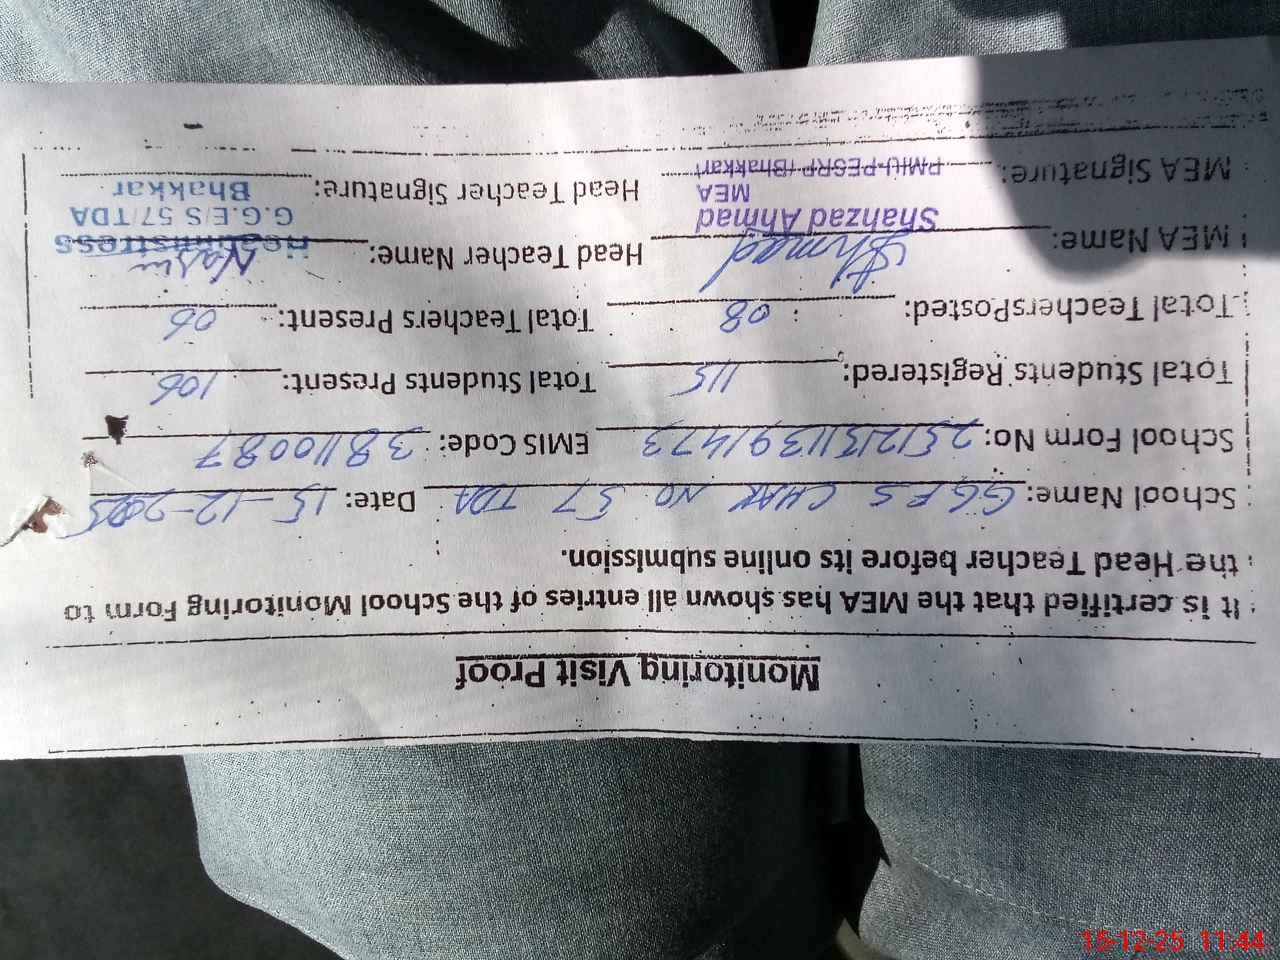 Monitoring Visit Proof
It is certified that the MEA has shown all entries of the School Monitoring Form to
the Head Teacher before its online submission.
School Name: GGES CHAK NO 57 TDA Date: 15-12-2025
School Form No: EMIS Code: 38110087
Total Students Registered: 115 Total Students Present: 106
Total TeachersPosted: 08 Total Teachers Present: 06
MEA Name: Ahmad Head Teacher Name:
Shahzad Ahmad Headmistress
MEA G.G.E/S 57/TDA
MEA Signature: PMIU-PESRP (Bhakkar) Head Teacher Signature: Bhakkar
15-12-25 11:44